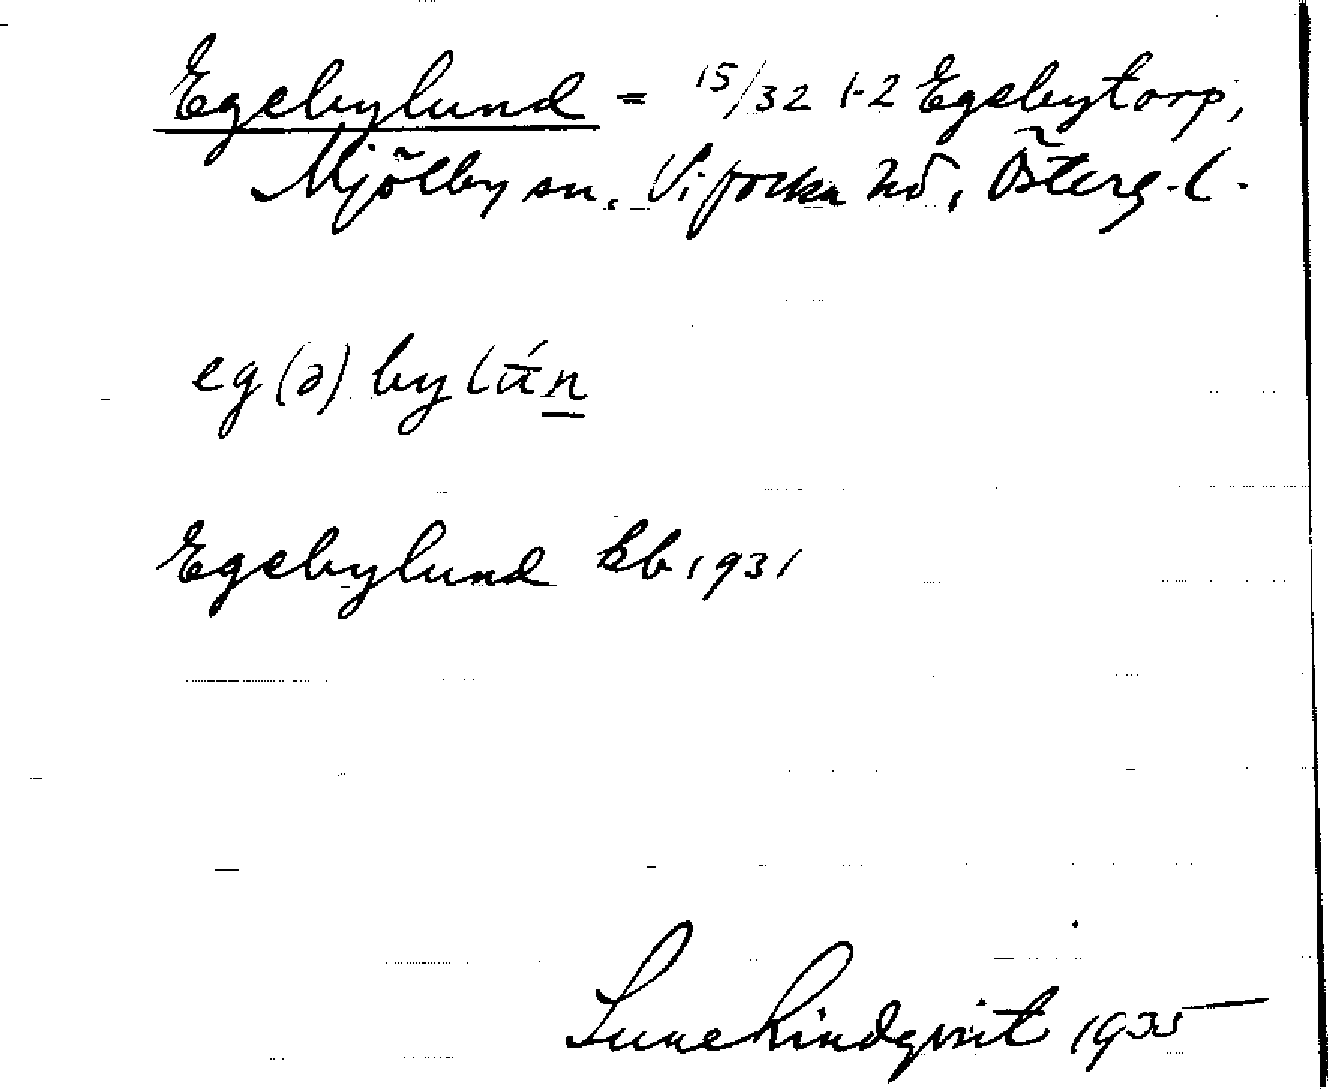 Egebylund = 15/32 1-2 Egebytorp,
Mjölby sn. Vifolka hd, Österg. l.
eg(ə)bylún
Egebylund kb 1931
Sune Lindqvist 1935